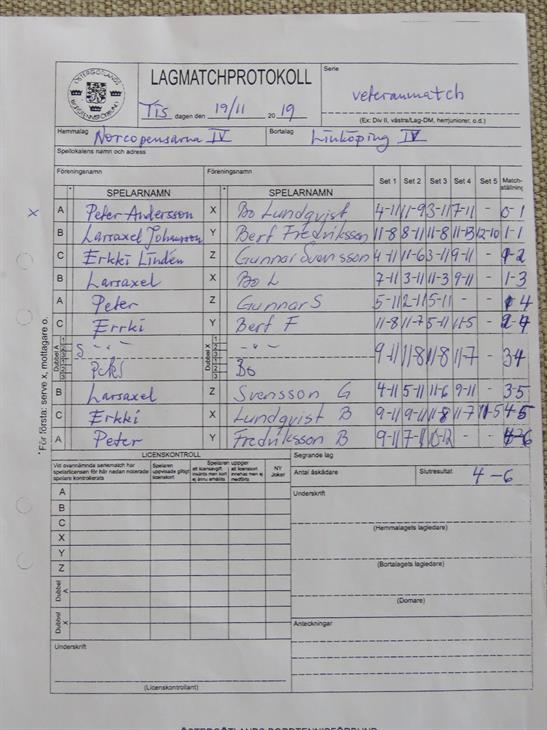 ÖSTERGÖTLANDS BORDTENNISFÖRBUND
LAGMATCHPROTOKOLL
Tis dagen den 19/11 2019
Serie
veteranmatch
(Ex: Div II, västra/Lag-DM, herrjuniorer, o.d.)
Hemmalag Norcopensarna IV Bortalag Linköping IV
Spellokalens namn och adress
Föreningsnamn Föreningsnamn Set 1 Set 2 Set 3 Set 4 Set 5 Match-ställning
* SPELARNAMN * SPELARNAMN
x A Peter Andersson X Bo Lundqvist 4-11 11-9 3-11 7-11 - 0-1
B Larsaxel Johansson Y Bert Fredriksson 11-8 8-11 11-8 11-13 12-10 1-1
C Erkki Linden Z Gunnar Svensson 4-11 11-6 3-11 9-11 - 1-2
B Larsaxel X Bo L 7-11 3-11 11-3 9-11 - 1-3
A Peter Z Gunnar S 5-11 2-11 5-11 - 1 4
C Erkki Y Bert F 11-8 11-7 5-11 11-5 - 2-4
Dubbel A 1 2 3 Dubbel X 1 2 3
9-11 11-8 11-8 11-7 - 3-4
1 2 3 1 2 3 Bo
B Larsaxel Z Svensson G 4-11 5-11 11-6 9-11 - 3-5
C Erkki X Lundqvist B 9-11 9-11 11-8 11-7 11-5 4-5
A Peter Y Fredriksson B 9-11 7-11 10-12 - - 4-6
* För första: serve x, mottagare o.
LICENSKONTROLL
Vid ovannämnda seriematch har spelarlicensen för här nedan noterade spelare kontrollerats
Spelaren uppvisade giltigt licenskort
Spelaren erl licensavgift. Invänts men kort ej ännu erhållits
Spelaren uppger att licenskort innehas men ej medförts
NY Joker
A
B
C
X
Y
Z
Dubbel A
Dubbel X
Underskrift
(Licenskontrollant)
Segrande lag
Antal åskådare Slutresultat 4-6
Underskrift
(Hemmalagets lagledare)
(Bortalagets lagledare)
(Domare)
Anteckningar
ÖSTERGÖTLANDS BORDTENNISFÖRBUND